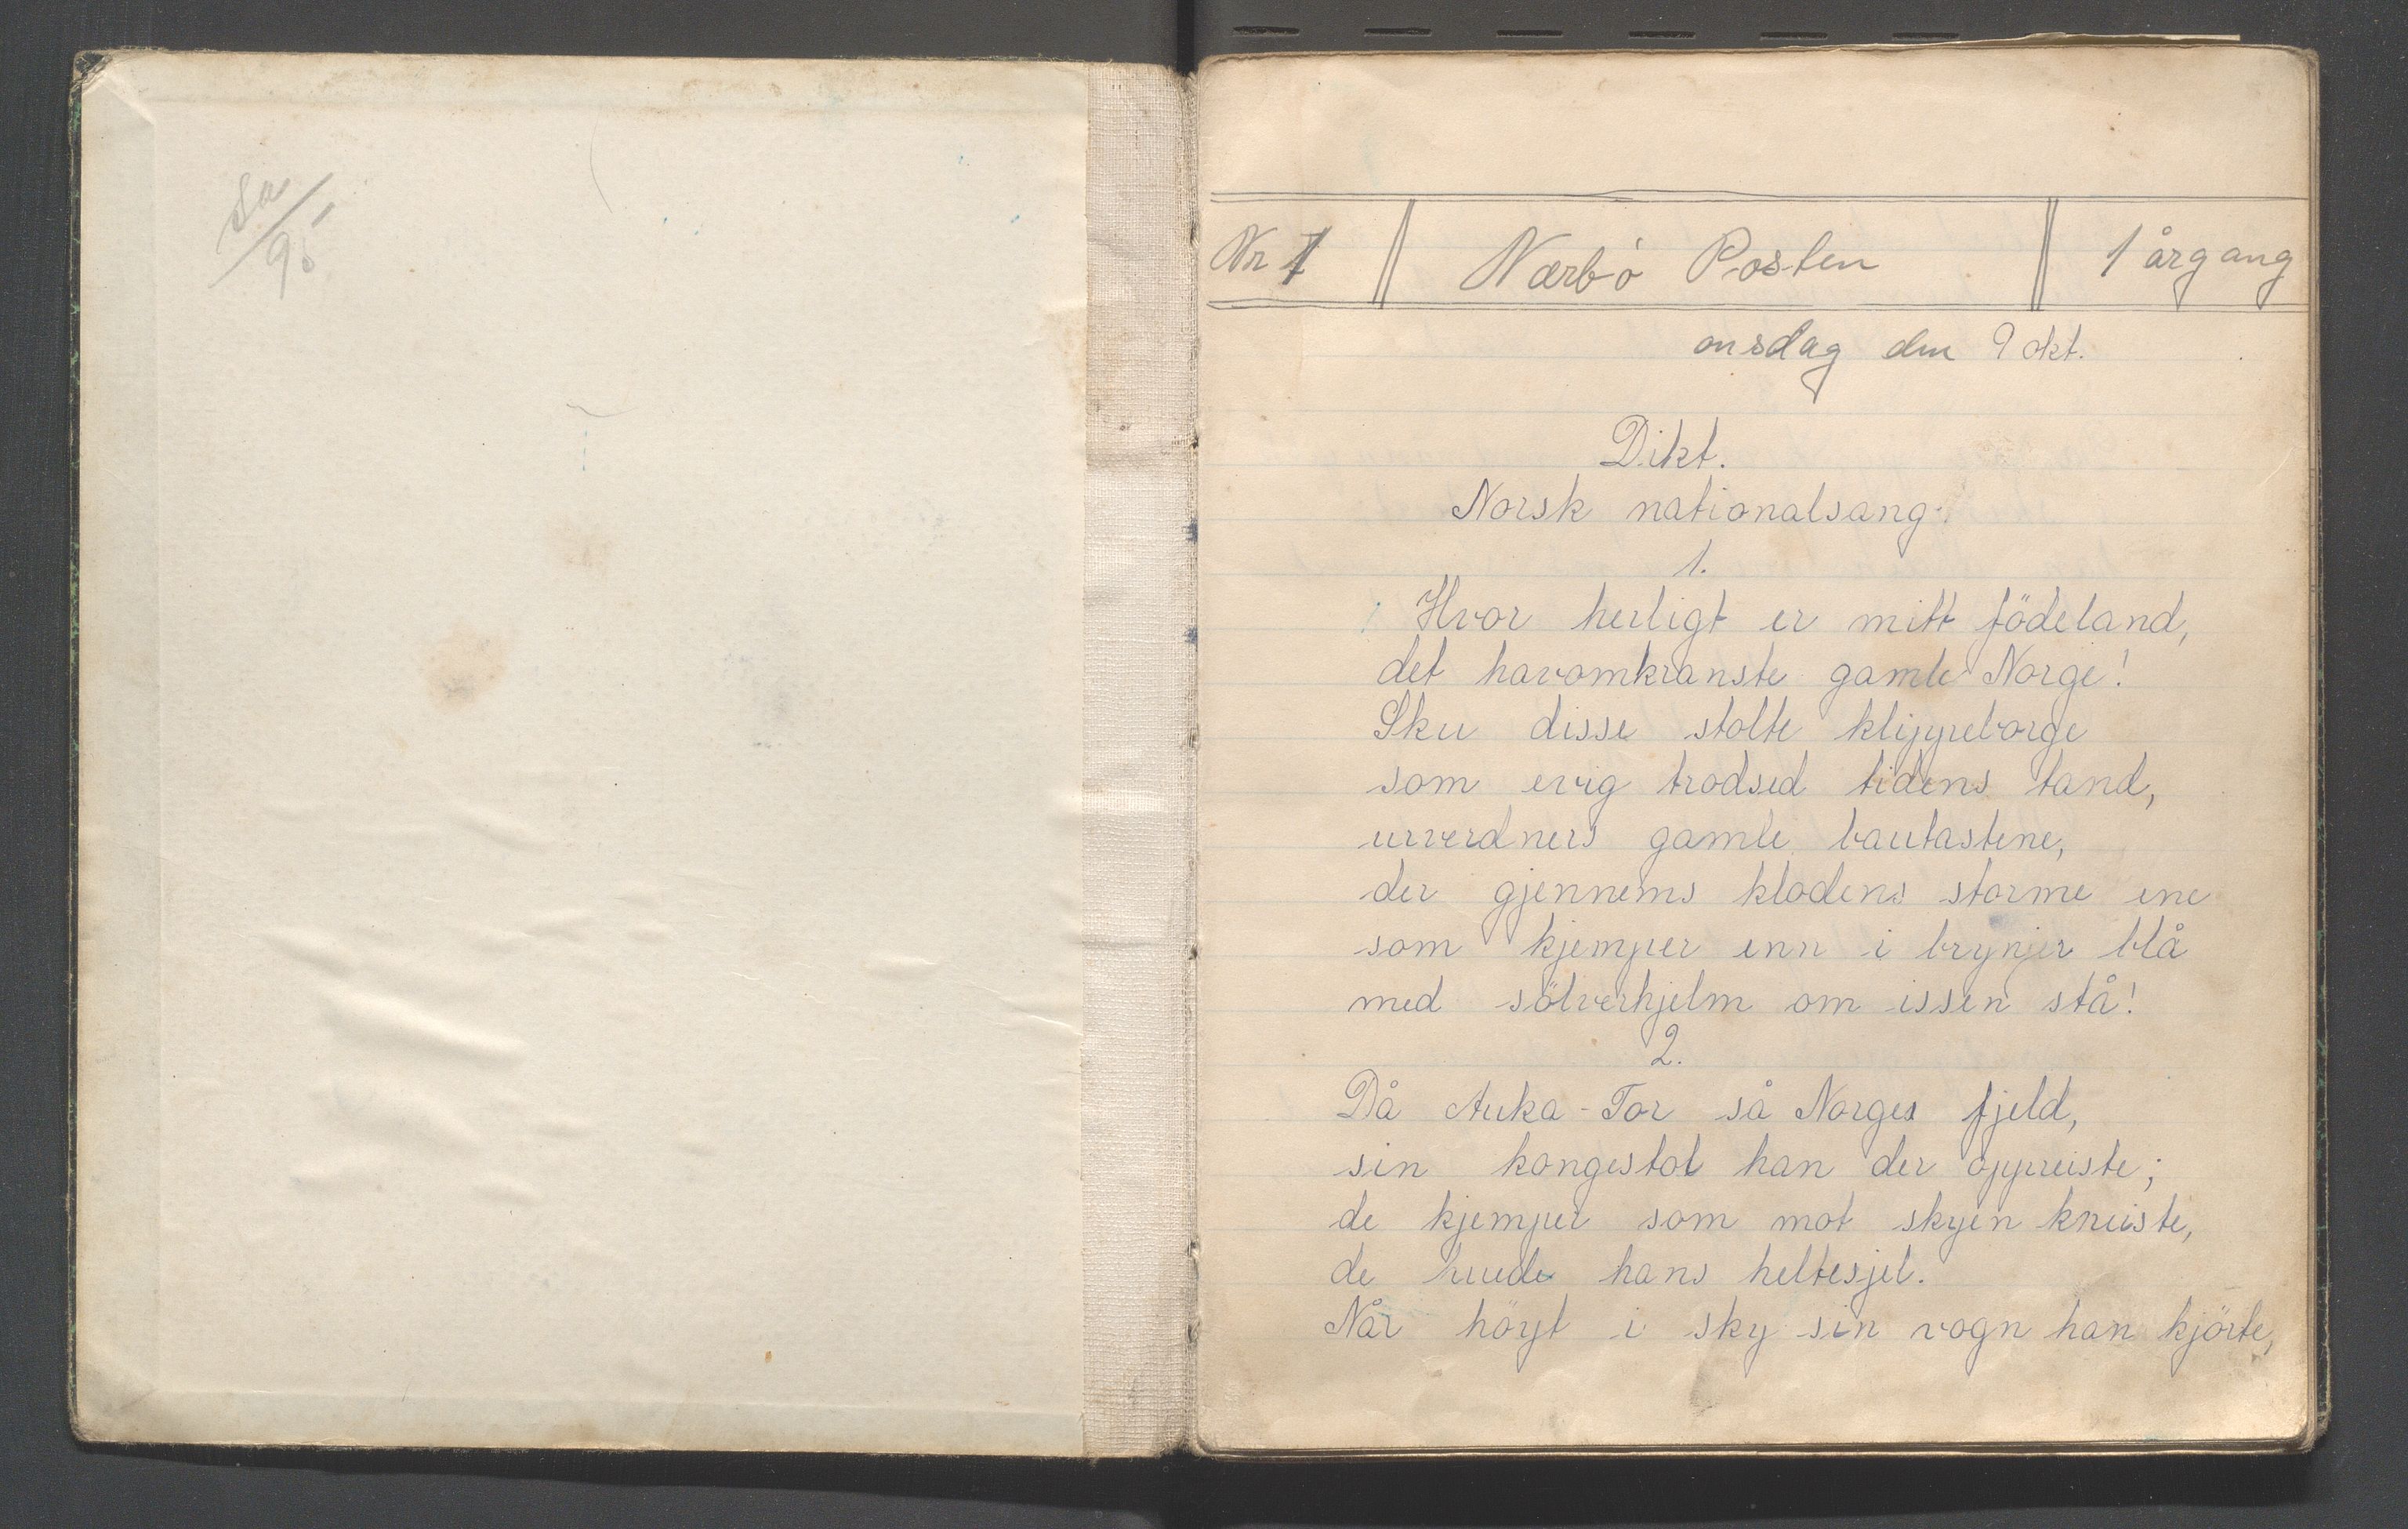 Sa
95
Nr 1 Nærbö Posten 1 årgang
onsdag den 9 okt.
Dikt.
Norsk nationalsang.
1.
Hvor herligt er mitt födeland,
det havomkranste gamle Norge!
Sku disse stolte klippeborge
som evig trodsed tidens tand,
urverdners gamle bautastene,
der gjennems klodens storme ene
som kjemper enn i brynjer blå
med sölverhjelm om issen stå!
2.
Då Auka-Tor så Norges fjeld,
sin kongestol han der oppreiste;
de kjemper som mot skyen kneiste,
de hans heltesjel.
Når höyt i sky sin vogn han kjörte,